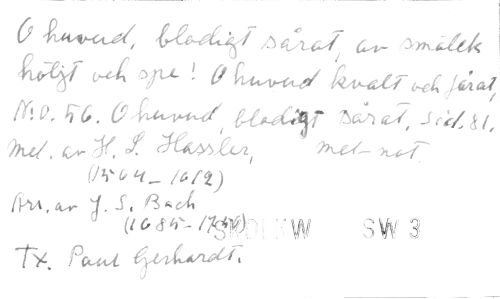 O huvud, blodigt sårat, av smälek
höljt och spe! O huvud kvalt och fårat,
N:o. 56. O huvud, blodigt sårat, Sid. 81,
Mel. av H. L. Hassler, mel-not.
(1564-1612)
Arr. av J. S. Bach
(1685-1750)
SW 3
Tx. Paul Gerhardt.